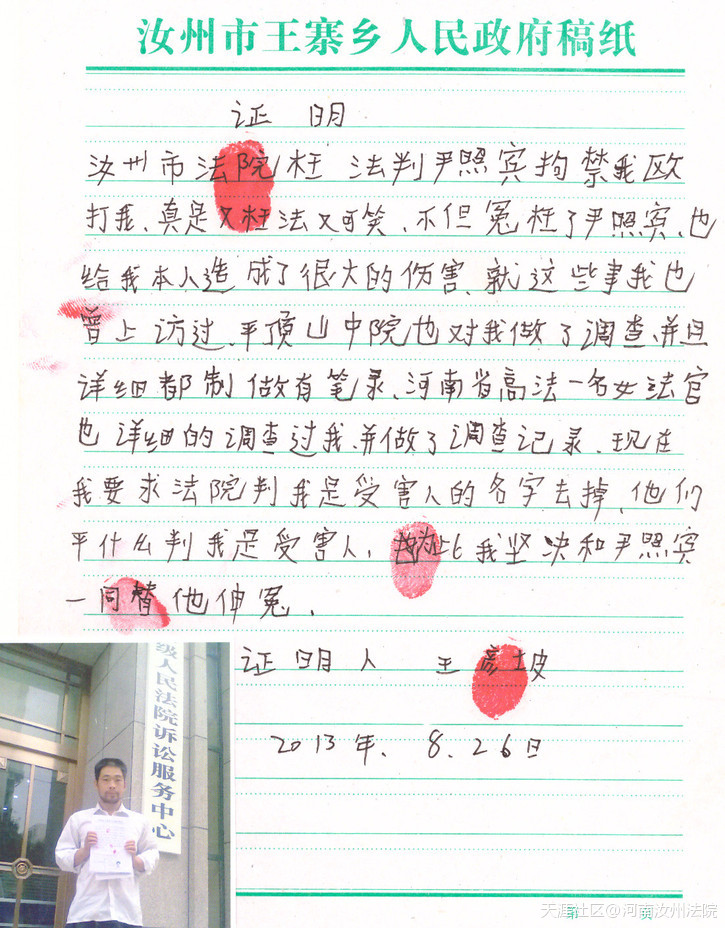 汝州市王寨乡人民政府稿纸
证 明
汝州市法院枉 法判尹照宾拘禁我欧
打我、真是又枉法又可笑、不但冤枉了尹照宾、也
给我本人造成了很大的伤害、就这些事我也
曾上访过、平顶山中院也对我做了调查、并且
详细都制做有笔录、河南省高法一名女法官
也详细的调查过我、并做了调查记录、现在
我要求法院判我是受害人的名字去掉、他们
平什么判我是受害人、因为此我坚决和尹照宾
一同替他伸冤、
证明人 王彦坡
2013年、8、26日
级人民法院诉讼服务中心
第 页
天涯社区@河南汝州法院